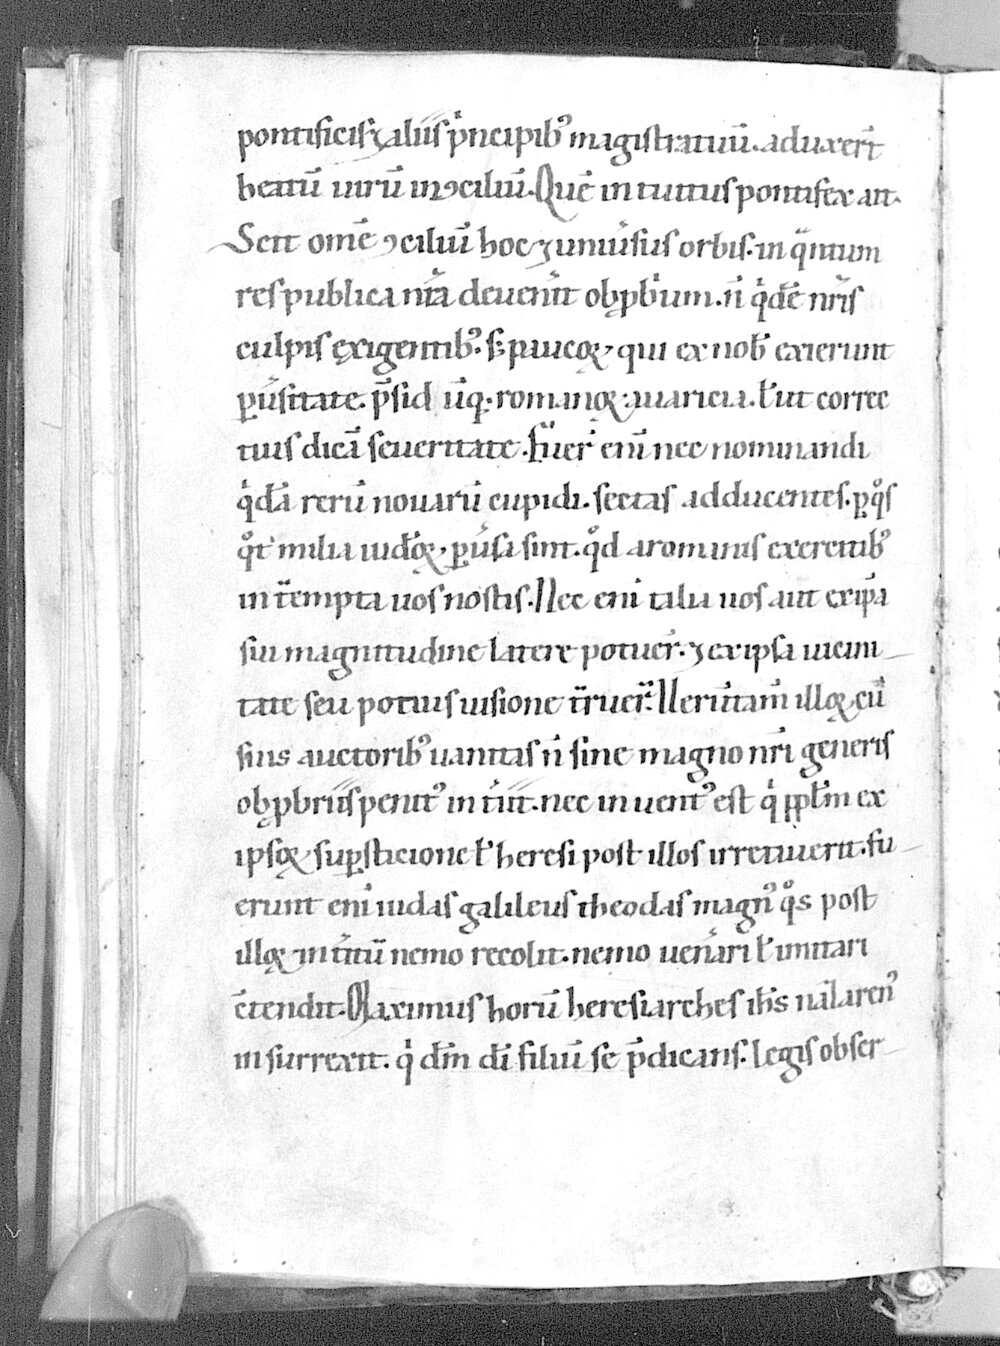 pontificis ⁊ aliis p̓ncipib᷒ magistratuū. aduxer̄t
beatū uirū in ꝯciliū. Quē intuitus pontifex ait.
Scit om̄e ꝯciliū hoc ⁊ uniu̓sus orbis. in q̓ntum
res publica nr̄a deuenit obꝓbrium. ñ q̓dē nr̄is
culpis exigentib᷒. s; paucoꝝ qui ex nob̄ exierunt
ꝑu̓sitate. p̄sid
romanoꝝ auaricia. ł ut correc
tius dicā seueritate. Fuer̄ eni nec nominandi
q̓dā rerū nouarū cupidi. sectas adducentes. ꝑ q̊s
q̊t milia iud̄oꝝ ꝑu̓sa sint. q̊d a romanis exercitib᷒
intempta uos nostis. Nec eni talia uos aut ex ip̄a
sui magnitudine latere potuer̄. ⁊ ex ipsa uicini
tate seu potius uisione
illoꝝ cū
suis auctorib᷒ uanitas ñ sine magno nr̄i generis
obꝓbriis penit᷒ in
nec inuent᷒ est q̓
ex
ipsoꝝ suꝑsticione ł heresi post illos irretiuerit. fu
erunt eni iudas galileus theodas magn᷒ q̊s post
illoꝝ int̓itū nemo recolit. nemo uen̓ari ł imitari
ꝯtendit. Maximus horū heresiarches ih̄s naȝaren᷒
insurrexit. q̓ d̄m dī filiū se p̄dicans. legis obser